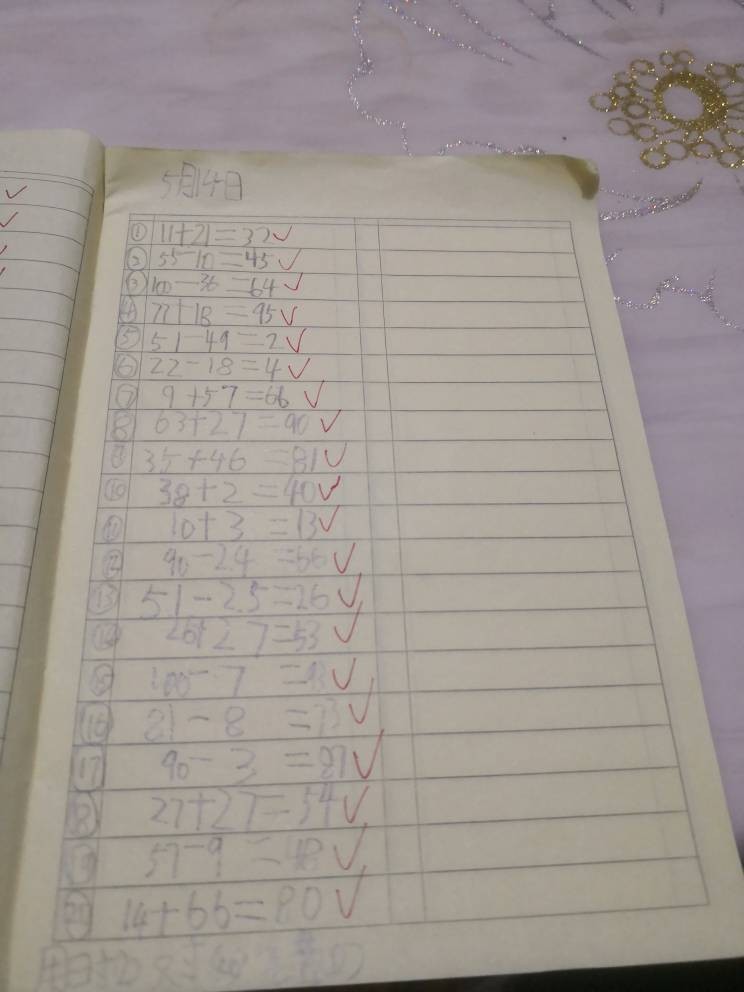 5月14日
① 11+21=32
② 55-10=45
③ 100-36=64
④ 77+18=95
⑤ 51-49=2
⑥ 22-18=4
⑦ 9+57=66
⑧ 63+27=90
⑨ 35+46=81
⑩ 38+2=40
⑪ 10+3=13
⑫ 90-24=66
⑬ 51-25=26
⑭ 26+27=53
⑮ 100-7=93
⑯ 81-8=73
⑰ 90-3=87
⑱ 27+27=54
⑲ 57-9=48
⑳ 14+66=80